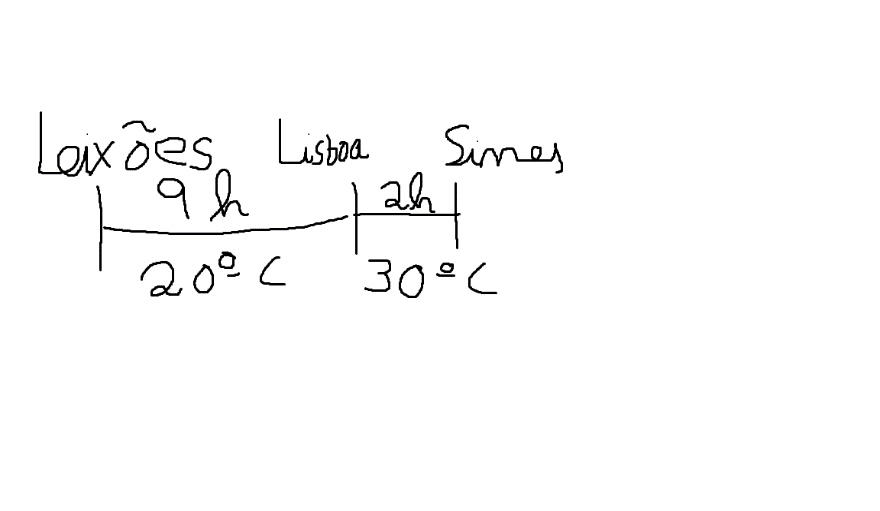 Leixões Lisboa Sines
9h 2h
20º C 30º C